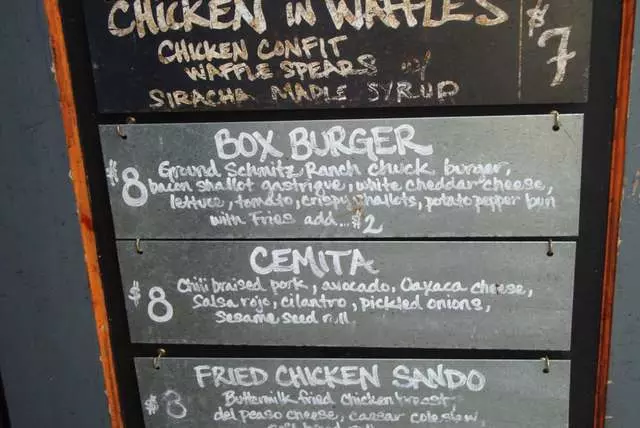 CHICKEN in WAFFLES
$7
CHICKEN CONFIT
WAFFLE SPEARS w/
SIRACHA MAPLE SYRUP
BOX BURGER
$8
Ground Schmitz Ranch chuck burger,
bacon shallot gastrique, white cheddar cheese,
lettuce, tomato, crispy shallots, potato pepper bun
with Fries add...$2
CEMITA
$8
Chili braised pork, avocado, Oaxaca cheese,
Salsa rojo, cilantro, pickled onions,
Sesame seed roll
FRIED CHICKEN SANDO
$8
Buttermilk fried chicken breast,
del peaso cheese, caesar coleslaw,